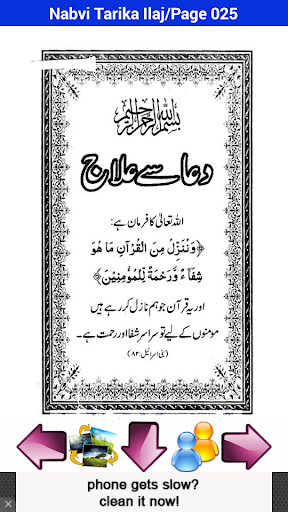 Nabvi Tarika Ilaj/Page 025
بسم الله الرحمن الرحيم
دعا سے علاج
اللہ تعالیٰ کا فرمان ہے:
﴿وَنُنَزِّلُ مِنَ الْقُرْآنِ مَا هُوَ
شِفَآءٌ وَّرَحْمَةٌ لِّلْمُؤْمِنِيْنَ﴾
اور یہ قرآن جو ہم نازل کر رہے ہیں
مومنوں کے لیے تو سراسر شفا اور رحمت ہے۔
(بنی اسرائیل: ۸۲)
phone gets slow?
clean it now!